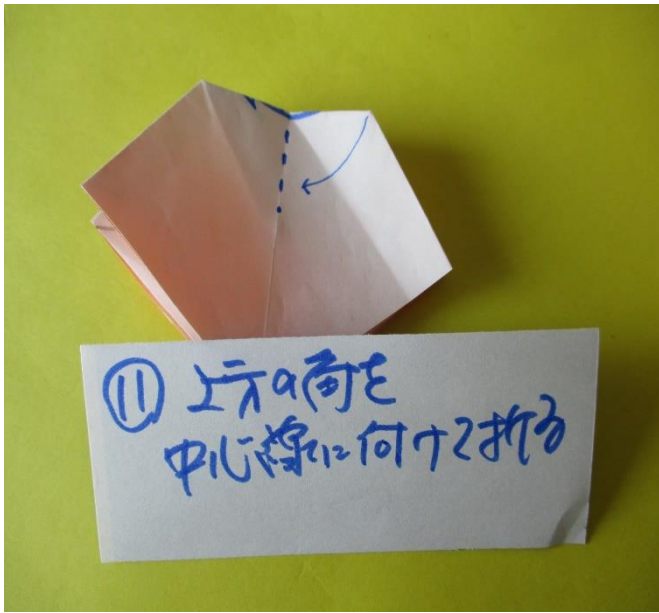 ⑪ 上方の角を
中心線に付けて折る